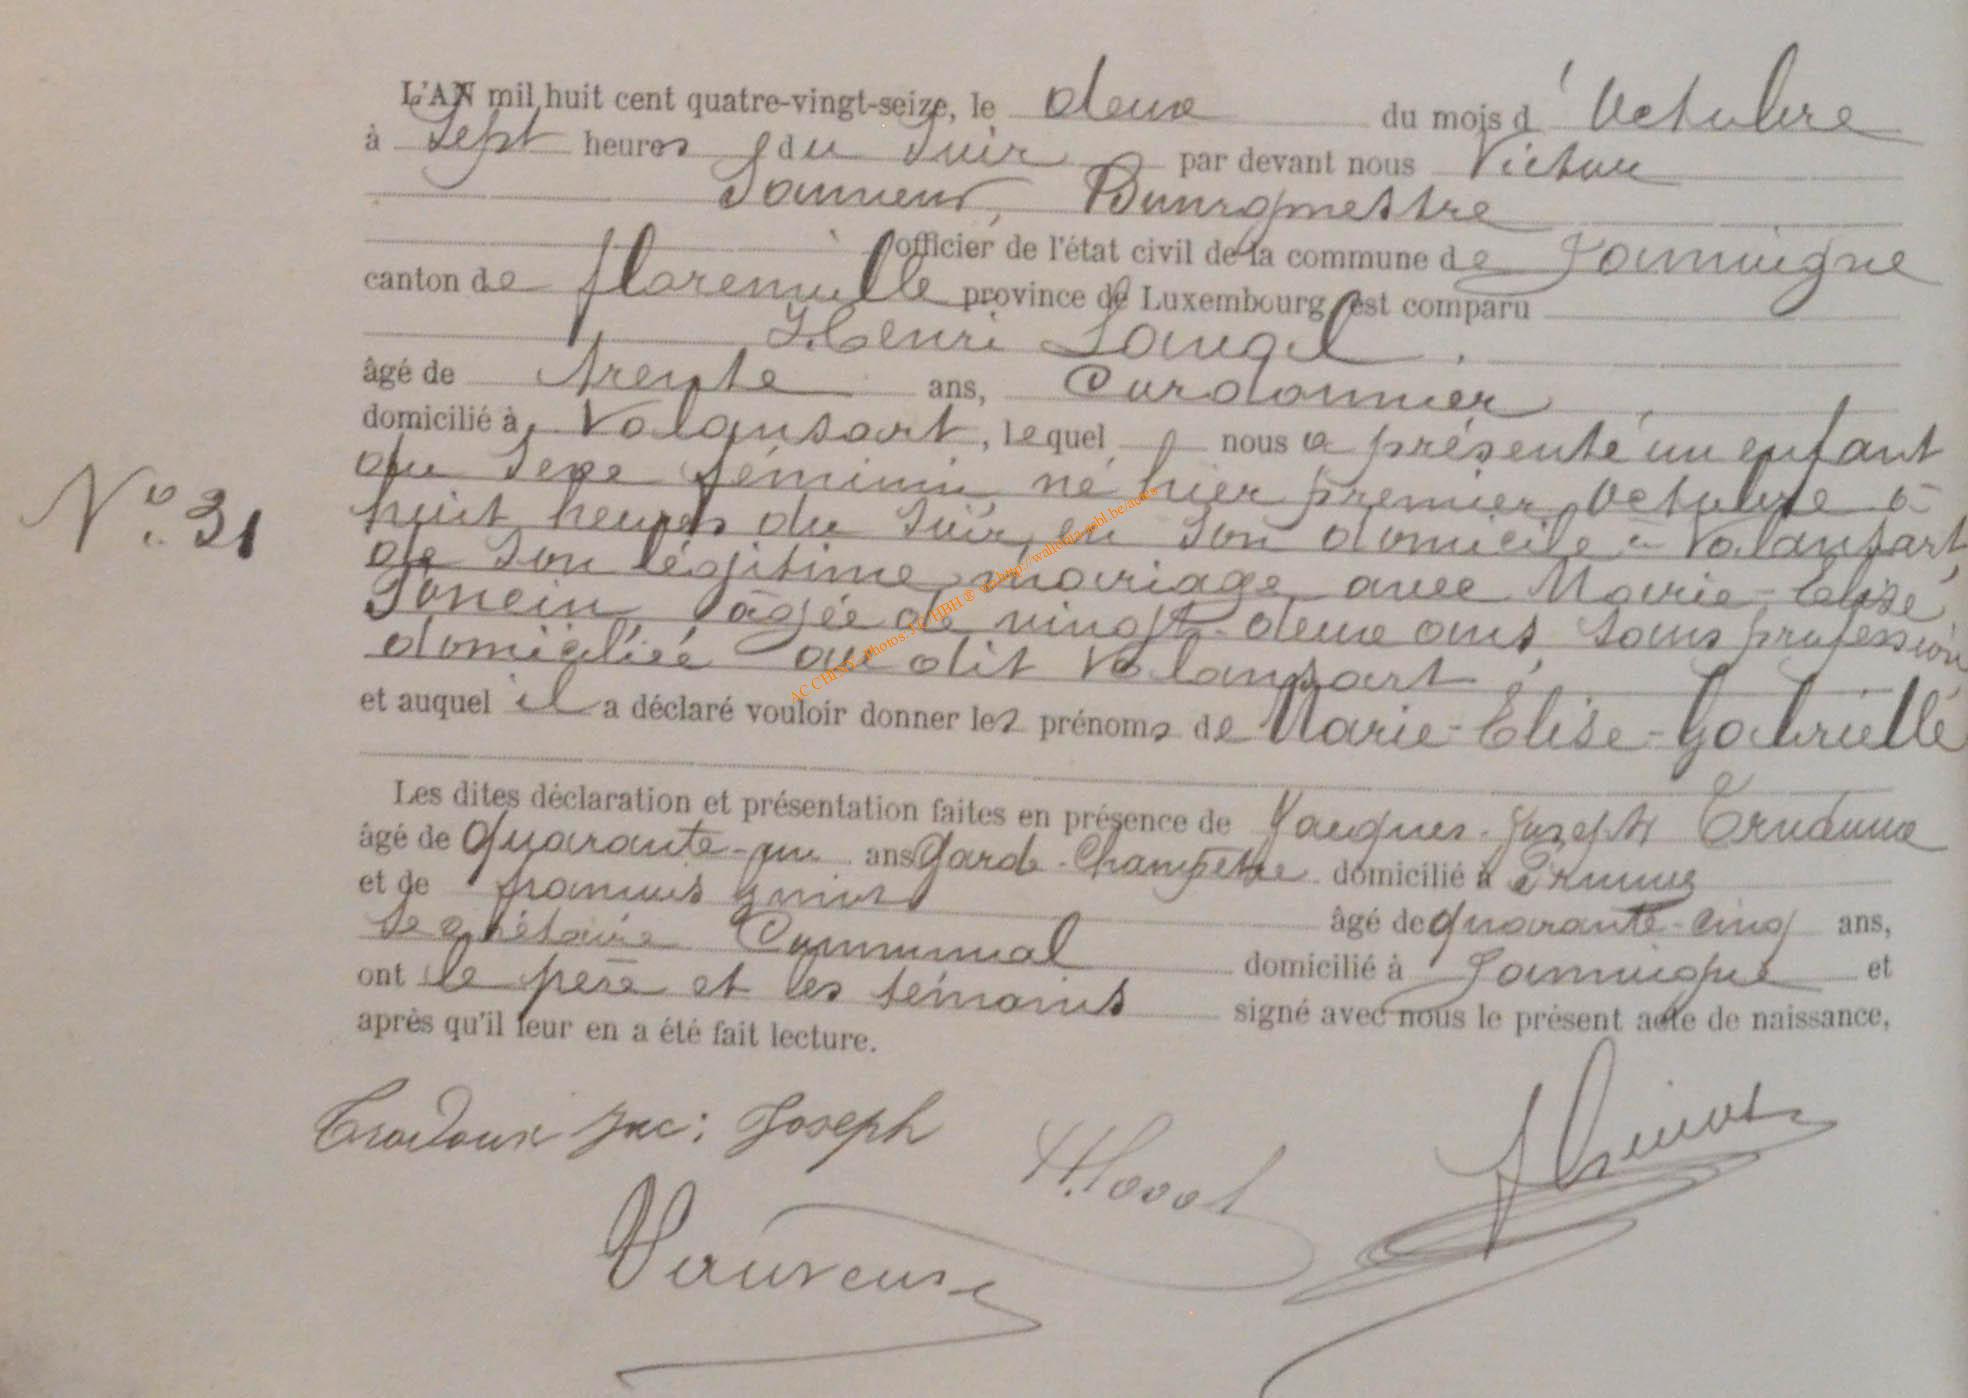 L'AN mil huit cent quatre-vingt-seize, le deux du mois d'Octobre
à Sept heures du Soir par devant nous Victor
Bourgmestre
officier de l'état civil de la commune de Jamoigne
canton de florenville province de Luxembourg est comparu
Henri
âgé de trente ans, Cordonnier
domicilié à Valansart, lequel nous a présenté un enfant
N° 31
du Sexe féminin né hier premier Octobre à
huit heures du Soir, en Son domicile à Valansart,
de Son légitime mariage avec Marie-Elise
âgée de vingt-deux ans Sans profession
domiciliée au dit Valansart,
et auquel il a déclaré vouloir donner les prénoms de Marie-Elise-Gabrielle
Les dites déclaration et présentation faites en présence de Jacques-Joseph
âgé de quarante-un ans Garde-Champêtre domicilié à Prouvy
et de françois âgé de quarante-cinq ans,
Secrétaire Communal domicilié à Jamoigne et
ont le père et les témoins signé avec nous le présent acte de naissance,
après qu'il leur en a été fait lecture.
Joseph